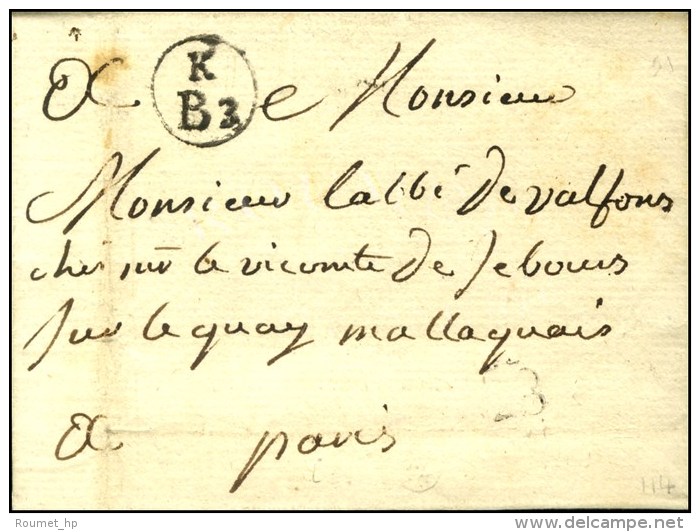 A Monsieur
K
B 3
Monsieur l'abbé de valfons
ches mr le vicomte de sebours
sur le quay mallaquais
A paris
3
114
Roumet_hp
www.delcampe.net